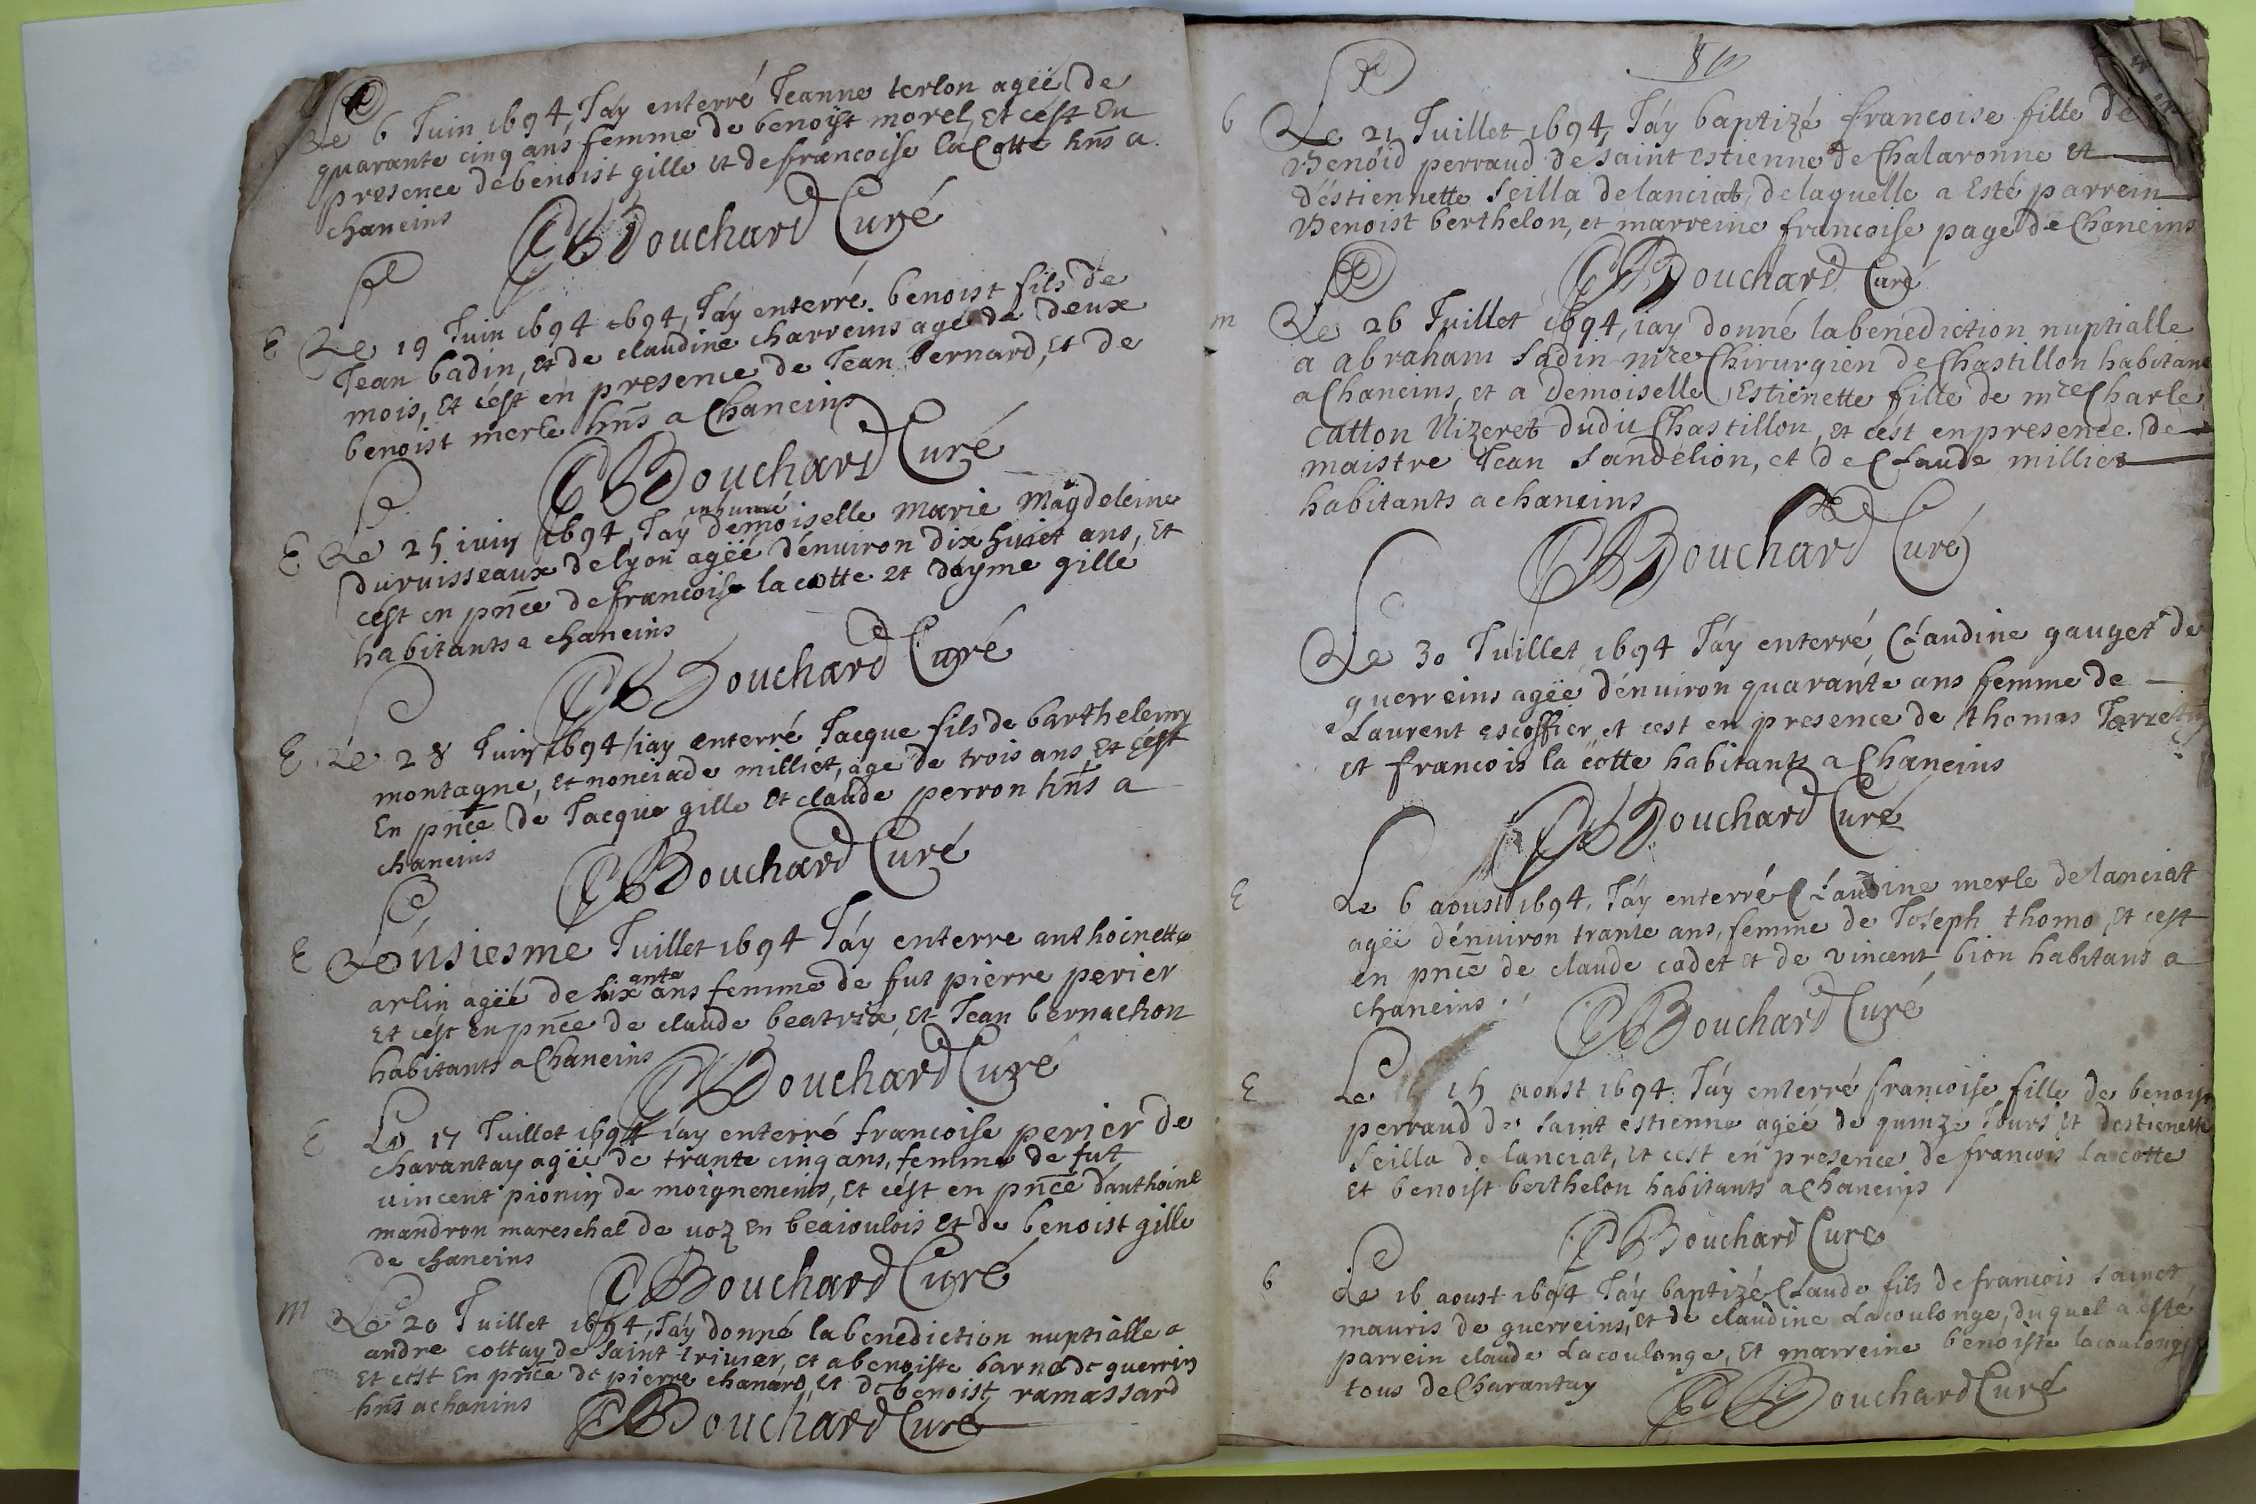 Le 6 Juin 1694, J'ay enterré Jeanne terlon ageë de
quarante cinq ans femme de benoist morel, Et c'est En
presence de benoist gille et de francoise la Cotte hñs a
chaneins
Bouchard Curé
E Le 19 Juin 1694 1694, J'ay enterré benoist fils de
Jean badin, et de claudine charreins agé de deux
mois, Et c'est en presence de Jean bernard, et de
benoist merle hñs a Chaneins
Bouchard Curé
inhumé
E Le 25 iuin 1694, J'ay demoiselle Marie Magdeleine
duruisseaux de lyon ageë d'enuiron dix huict ans, Et
c'est en pñce de francoise la cotte et d'ayme gille
habitants a chaneins
Bouchard Curé
E Le 28 Juin 1694 i'ay enterré Jacque fils de barthelemy
montagne, et nonciade milliet, age de trois ans, Et c'est
En pñce de Jacque gille Et claude perron hñs a
chaneins
Bouchard Curé
E Le onsiesme Juillet 1694 J'ay enterre anthoinette
ante
arlin ageé de six ans femme de fut pierre perier
Et c'est en pñce de claude beatrix, Et Jean bernachon
habitants a Chaneins
Bouchard Curé
E Le 17 Juillet 1694 i'ay enterré francoise perier de
charantay ageé de trante cinq ans, femme de fut
vincent pionin de moigneneins, Et c'est en pñce d'anthoine
mandron mareschal de uoz En beaioulois Et de benoist gille
de chaneins
Bouchard Curé
m Le 20 Juillet 1694, J'ay donné la benediction nuptialle a
andre cottay de saint triuier, et a benoiste barnode guerrins
Et c'est En pñce de pierre chanard, Et de benoist ramassard
hñs a chanins
Bouchard Curé
86
b Le 21 Juillet 1694, J'ay baptizé francoise fille de
Benoid perraud de saint estienne de Chalaronne et
d'estiennette seilla de lanciat, de laquelle a Esté parrein
Benoist berthelon, et marreine francoise page de Chaneins
Bouchard Curé
m Le 26 Juillet 1694, i'ay donné la benediction nuptialle
a abraham sadin mre Chirurgien de Chastillon habitant
a Chaneins, et a Demoiselle Estienette fille de mre Charle
catton Nizeret dudit Chastillon, et c'est en presence de
maistre Jean sandelion, et de Claude millier
habitants a chaneins
Bouchard Curé
Le 30 Juillet 1694 J'ay enterré Claudine gauget de
guerreins ageë d'enuiron quarante ans femme de
Laurent escoffier, et c'est en presence de thomas
et francois la cotte habitants a Chaneins
Bouchard Curé
E Le 6 aoust 1694, J'ay enterré Claudine merle de lanciat
ageë d'enuiron trante ans, femme de Joseph thomo Et c'est
en pñce de claude cadet et de vincent bion habitans a
chaneins
Bouchard Curé
E Le 15 aoust 1694. J'ay enterré francoise fille de benoist
perraud de saint estienne ageé de quinze Jours Et d'estienette
Seilla de lanciat, et c'est en presence de francois la cotte
Et benoist berthelon habitants a Chaneins
Bouchard Curé
b Le 16 aoust 1694 J'ay baptizé Claude fils de francois sainct
mauris de guerreins, et de claudine Lacoulonge, duquel a esté
parrein claude Lacoulonge, Et marreine benoiste lacoulonge
tous de Charantay
Bouchard Curé